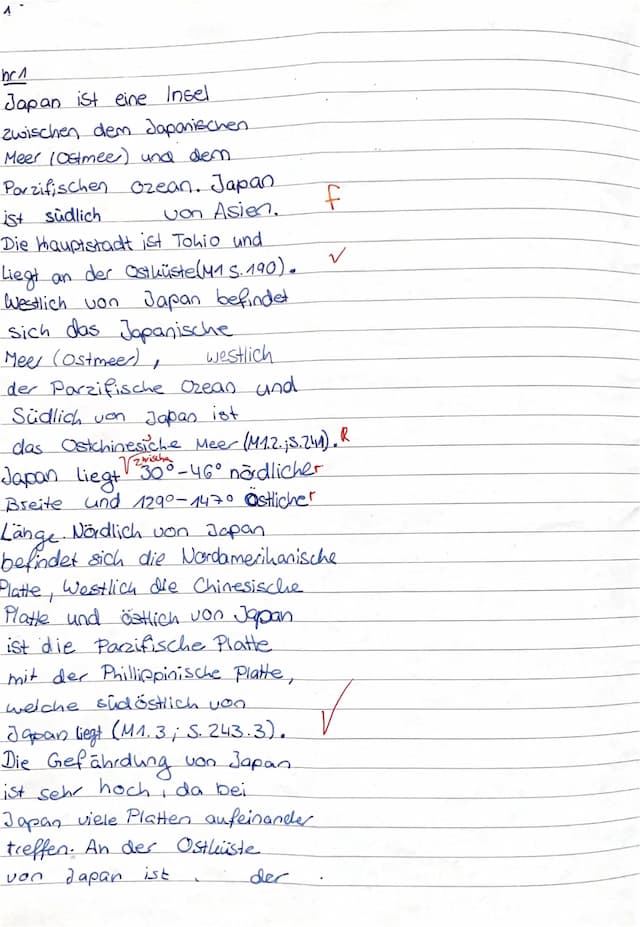 1
nr1
Japan ist eine Insel
zwischen dem Japanischen
Meer (Ostmeer) und dem
Parzifischen Ozean. Japan
ist südlich von Asien. f
Die Hauptstadt ist Tokio und
liegt an der Ostküste (M1 S.190). ✓
Westlich von Japan befindet
sich das Japanische
Meer (Ostmeer), westlich
der Parzifische Ozean und
Südlich von Japan ist
das Ostchinesiche Meer (M1.2.; S.241). R
Japan liegt √ zwischen 30°-46° nördlicher
Breite und 129°-147° östlicher
Länge. Nördlich von Japan
befindet sich die Nordamerikanische
Platte, Westlich die Chinesische
Platte und östlich von Japan
ist die Parzifische Platte
mit der Phillippinische Platte,
welche südöstlich von
Japan liegt (M1.3; S.243.3). ✓
Die Gefährdung von Japan
ist sehr hoch, da bei
Japan viele Platten aufeinander
treffen. An der Ostküste
von Japan ist der